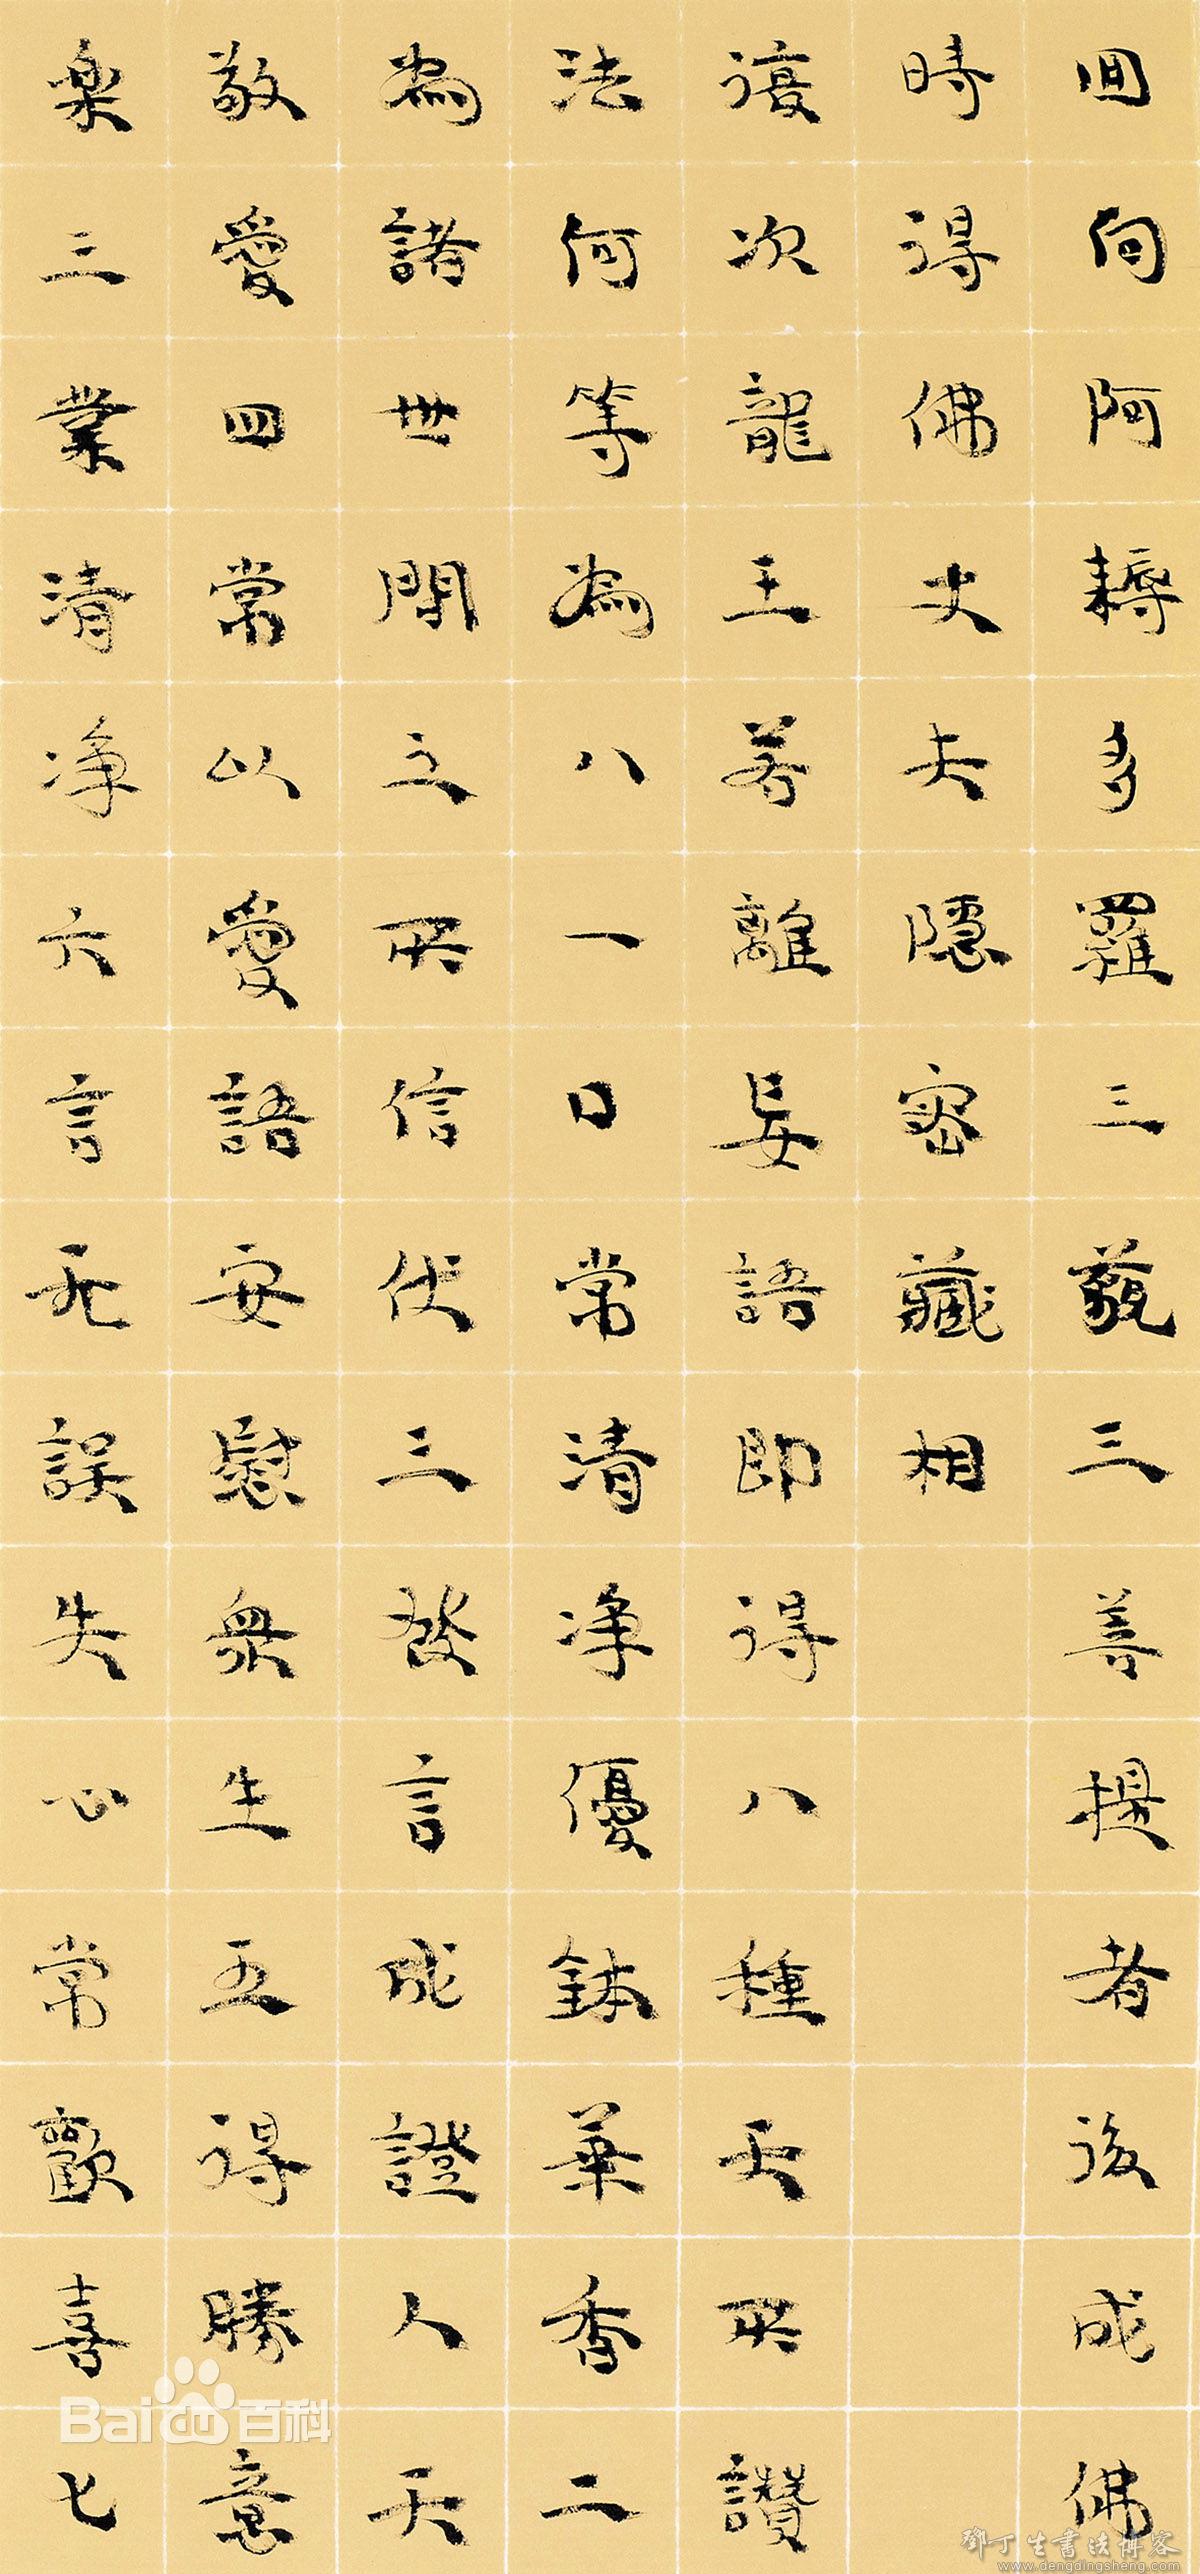 回向阿耨多羅三藐三菩提者後成佛
時得佛丈夫隱密藏相
復次龍王若離妄語即得八種天所讚
法何等為八一口常清淨優鉢華香二
為諸世間之所信伏三發言成證人天
敬愛四常以愛語安慰衆生五得勝意
楽三業清淨六言无誤失心常歡喜七
Bai 百科
鄧丁生書法博客
www.dengdingsheng.com